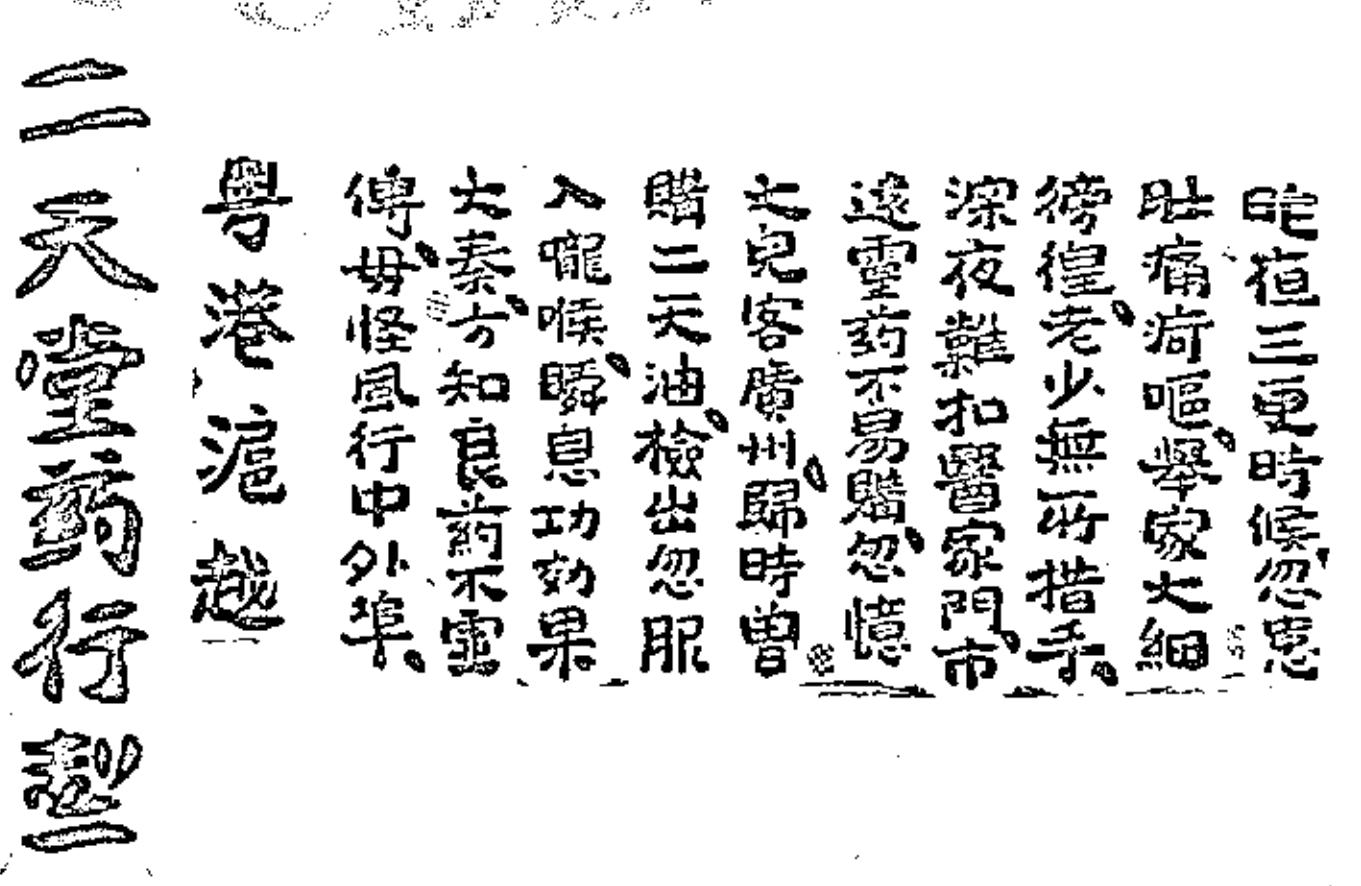 昨夜三更時候、忽患
肚痛疴嘔、舉家大細
徬徨、老少無所措手、
深夜難扣醫家門、市
遠靈葯不易購、忽憶
大兒客廣州、歸時曾
購二天油、檢出忽服
入嚨喉、瞬息功効果
大奏、方知良葯不虛
傳、毋怪風行中外埠、
粵港滬越
二天堂葯行製